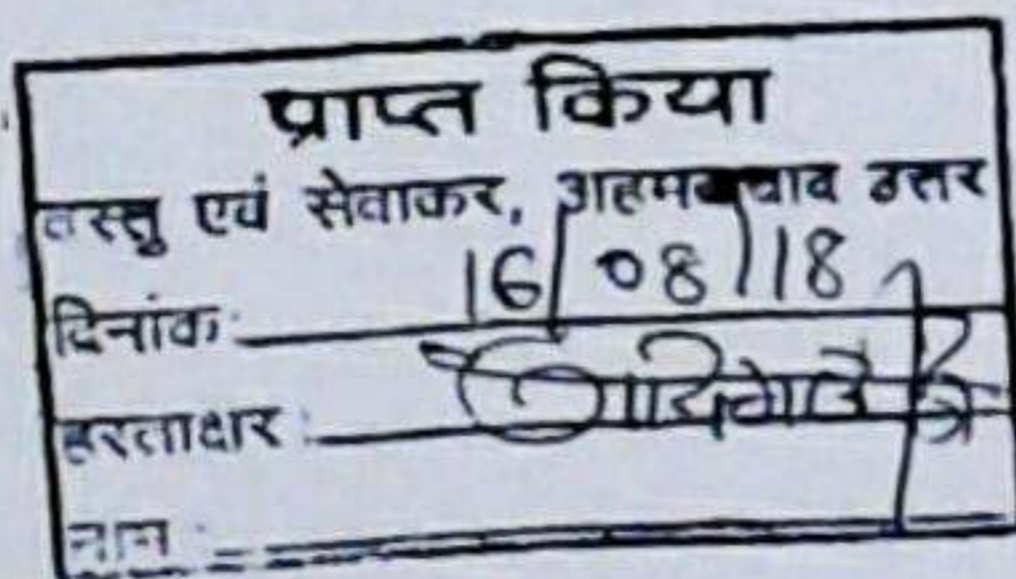 प्राप्त किया
वस्तु एवं सेवाकर, अहमदाबाद उत्तर
दिनांक: 16/08/18
हस्ताक्षर:
नाम: